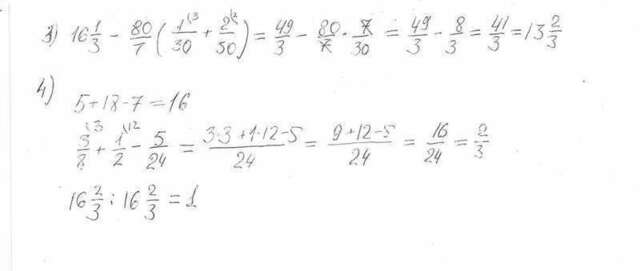 3) 16 1/3 - 80/7 ( 1/30 \3 + 2/50 \2 ) = 49/3 - 80/7 · 7/30 = 49/3 - 8/3 = 41/3 = 13 2/3
4)
5+18-7=16
3/8 \3 + 1/2 \12 - 5/24 = 3·3+1·12-5/24 = 9+12-5/24 = 16/24 = 2/3
16 2/3 : 16 2/3 = 1